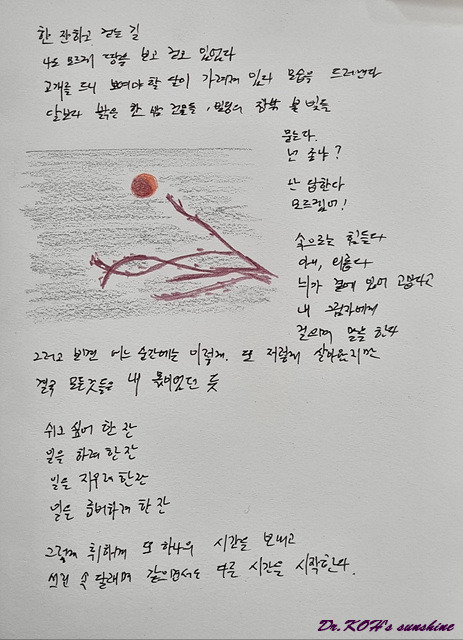 한 잔하고 걷는 길
나도 모르게 땅을 보고 걷고 있었다
고개를 드니 보여야 할 달이 가려져 있다 모습을 드러낸다
달보다 밝은 한 밤 건물들, 빌딩의 장막 불빛들
묻는다.
넌 좋냐?
난 답한다
모르겠어!
속으로는 힘들다
아니, 외롭다
니가 곁에 있어 고맙다고
내 그림자에게
걸으며 말을 한다
그러고 보면 어느 순간에는 이렇게, 또 저렇게 살아온
결국 모든 것들은 내 몫이었던 듯
쉬고 싶어 한 잔
일을 하려 한 잔
일을 지우려 한 잔
일을 준비하려 한 잔
그렇게 취하게 또 하나의 시간을 보내고
쓰린 속 달래며 같으면서도 다른 시간을 시작한다.
Dr.KOH's sunshine